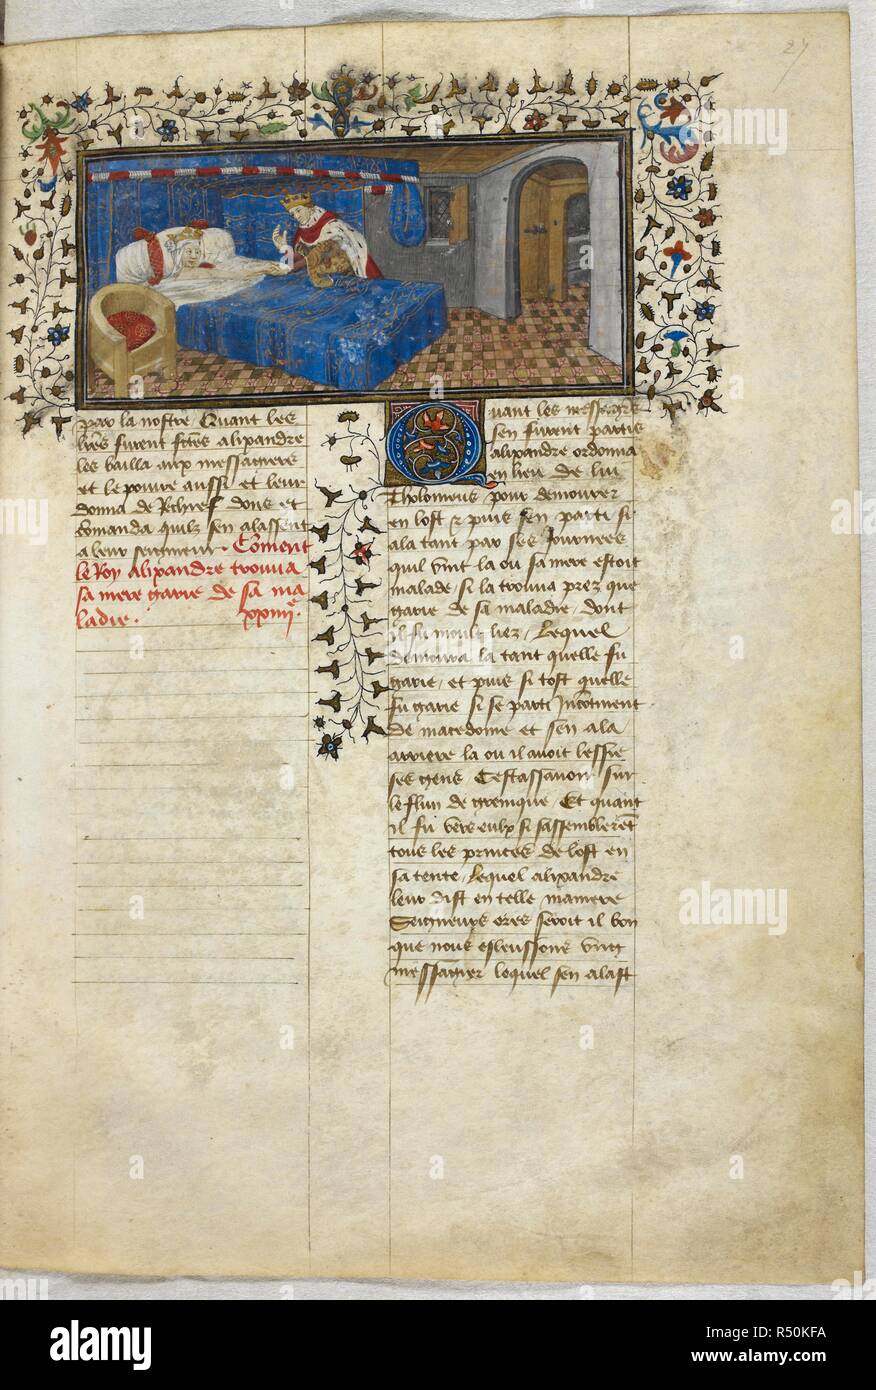 27
par la nostre. Quant les
lres furent fctes alipandre
les bailla aux messagers
et le poivre aussi et leur
donna de Riches dons et
comanda quilz sen alassent
a leur seigneur. Coment
le Roy alipandre trouva
sa mere garie de sa ma
ladie. xxiiiie.
Quant les messagers
sen furent partis
alipandre ordonna
en lieu de lui
Tholomeus pour demourer
en lost & puis sen parti si
ala tant par ses Journees
quil vint la ou sa mere estoit
malade si la trouva prez que
garie de sa maladie, dont
il fu moult liez, Lequel
demoura la tant quelle fu
garie, et puis si tost quelle
fu garie si se parti Incotinent
de macedoine et sen ala
arriere la ou il avoit lessie
ses gens Cestassavoir sur
le flun de grenique, Et quant
il fu vers eulx si sassemblerent
tous les princes de lost en
sa tente, Lequel alipandre
leur dist en telle maniere
Seigneurs ores seroit il bon
que nous esleussions ung
messagier lequel sen alast
alamy stock photo
alamy
Image ID: R50KFA
www.alamy.com